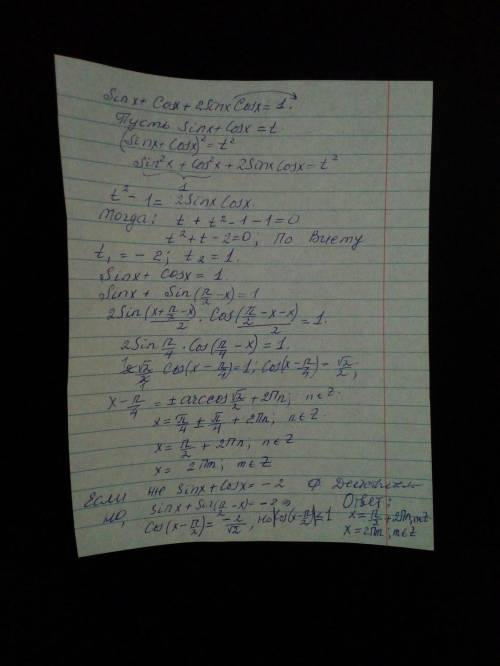 Sinx + Cosx + 2SinxCosx = 1.
Пусть Sinx + Cosx = t
(Sinx + Cosx)² = t²
Sin²x + cos²x + 2SinxCosx = t²
1
t² - 1 = 2SinxCosx.
Тогда: t + t² - 1 - 1 = 0
t² + t - 2 = 0; По Виету
t₁ = -2; t₂ = 1.
Sinx + Cosx = 1.
Sinx + Sin(π/2 - x) = 1
2Sin (x + π/2 - x)/2 · Cos (π/2 - x - x)/2 = 1.
2Sin π/4 · Cos(π/4 - x) = 1.
2 · √2/2 Cos(x - π/4) = 1; Cos(x - π/4) = √2/2;
x - π/4 = ± arccos √2/2 + 2πn; n∈Z
x = π/4 ± π/4 + 2πn; n∈Z.
x = π/2 + 2πn; n∈Z
x = 2πm; m∈Z
Если же Sinx + Cosx = -2 ∅ Действитель
но, Sinx + Sin(π/2 - x) = -2 ⇒
Cos(x - π/2) = -2/√2, но |Cos(x - π/2)| ≤ 1
Ответ:
x = π/2 + 2πn, n∈Z
x = 2πm, m∈Z